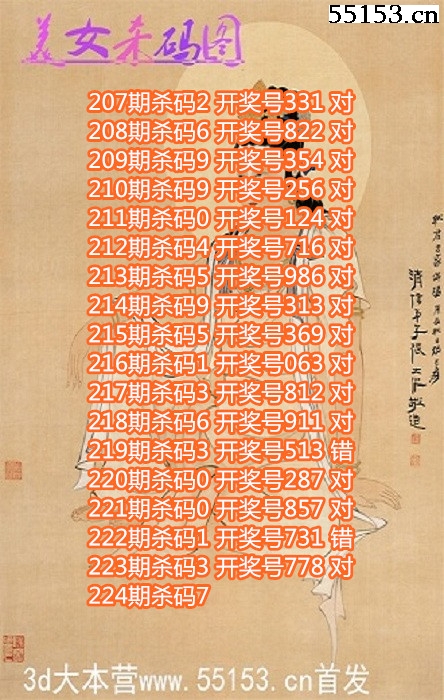 55153.cn
美女杀码图
207期杀码2 开奖号331 对
208期杀码6 开奖号822 对
209期杀码9 开奖号354 对
210期杀码9 开奖号256 对
211期杀码0 开奖号124 对
212期杀码4 开奖号716 对
213期杀码5 开奖号986 对
214期杀码9 开奖号313 对
215期杀码5 开奖号369 对
216期杀码1 开奖号063 对
217期杀码3 开奖号812 对
218期杀码6 开奖号911 对
219期杀码3 开奖号513 错
220期杀码0 开奖号287 对
221期杀码0 开奖号857 对
222期杀码1 开奖号731 错
223期杀码3 开奖号778 对
224期杀码7
3d大本营www.55153.cn首发